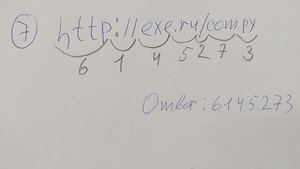 7 http://exe.ru/compy
6 1 4 5 2 7 3
Ответ: 6145273